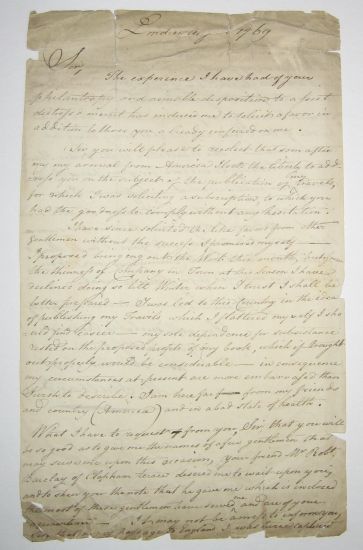 Sir,
The experience I have had of your
philanthropy and amiable disposition to assist
distress'd merit has induced me to solicit a favor in
addition to those you already conferred on me.
Sir you will please to recollect that soon after
my arrival from America I took the liberty to add
ress you on the subject of the publication of my travels,
for which I was soliciting a subscription, to which you
had the goodness to comply without any hesitation.
I have since solicited the like favor from other
gentlemen without the success I promised myself
I proposed bring ing out the Work this month, but
the thinness of Company in Town at this season I have
declined doing so till Winter, when I trust I shall be
better prepared — I was led to this Country in the idea
of publishing my Travels which I flattered myself I sho
uld find — my sole dependence for subsistance
rested on the proposed profits of my book, which if brought
out properly would be considerable — in consequence
my circumstances at present are more embarrassed than
I wish to describe. I am here far from my friends
and country (America) and in a bad state of health.
What I have to request of you, Sir, that you will
be so good as to give me the names of a few gentlemen that
may on this occasion, your friend Mr Robt
Barclay of Clapham terrace desired me to wait upon you,
and to shew you the note that he gave me which is inclosed
the most of these gentlemen have served me and are of your
acquaintance — It may not be amiss to inform you,
that on my passage to England I was twice captured